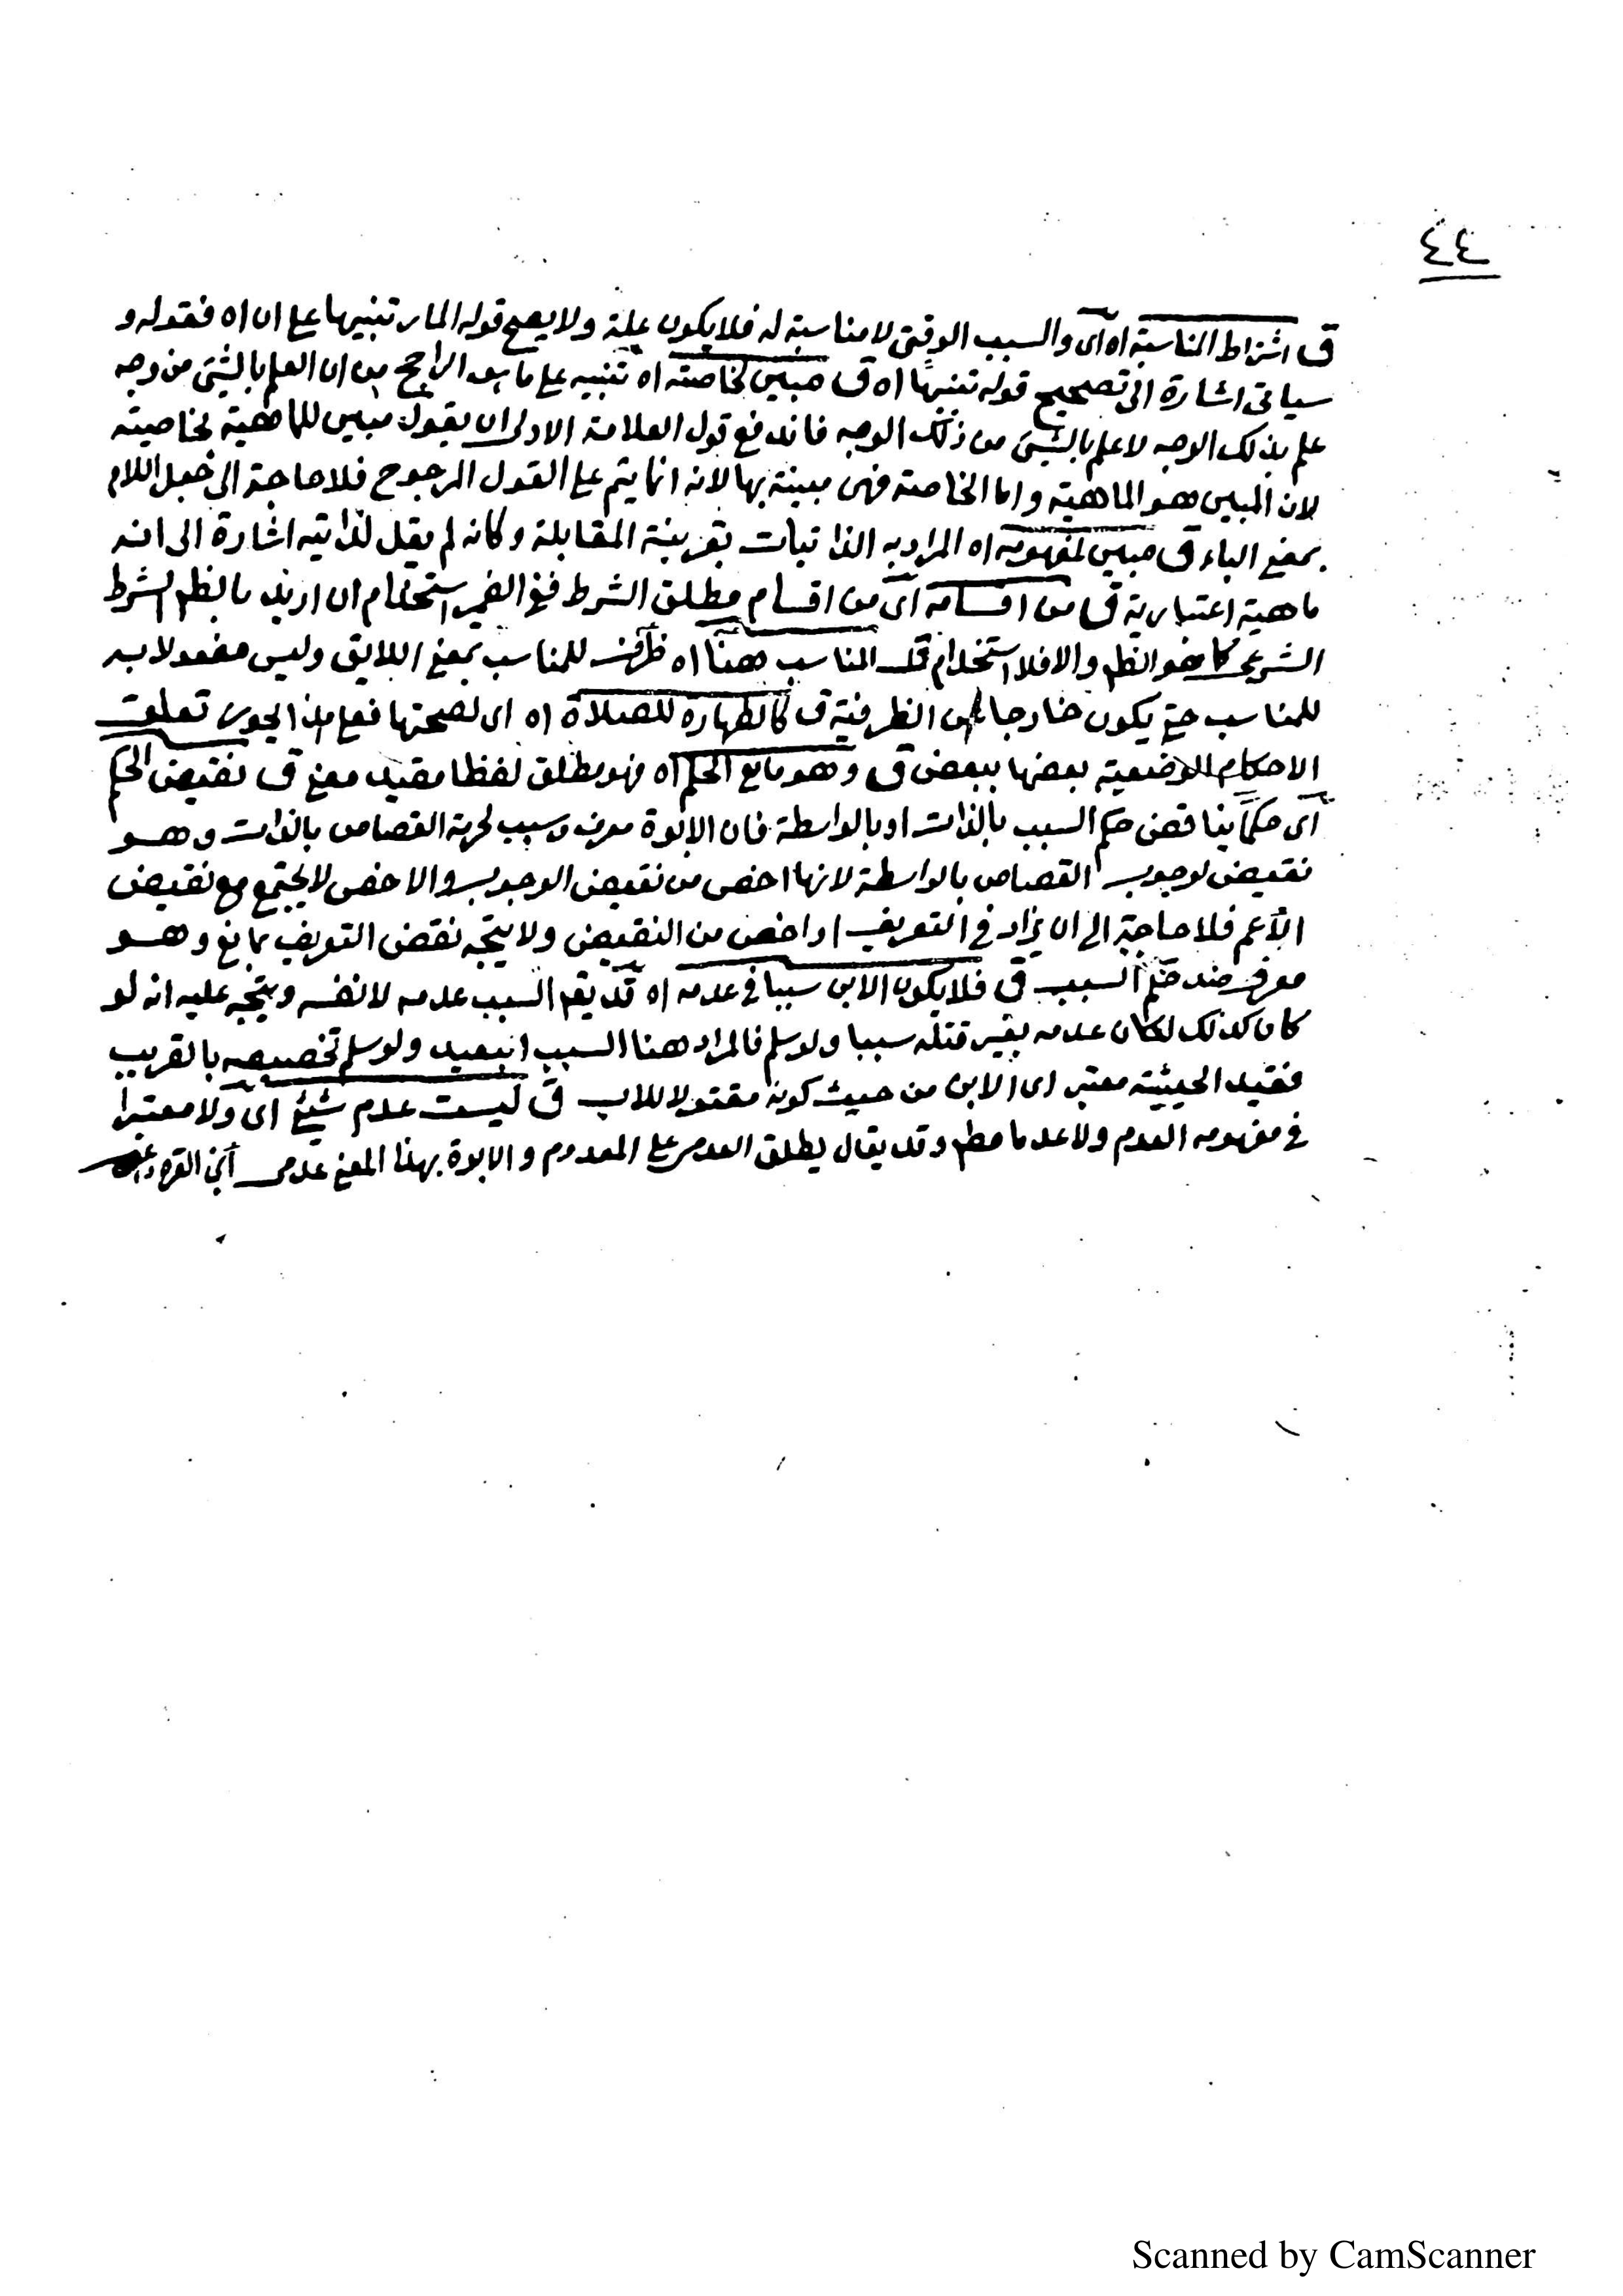 ٤٤
ق اشتراط المناسبة اه اى والسبب الوقتى لا مناسبة له فلا يكون علة ولا يصح قوله المار تنبيها على ان اه فقوله و
سياتى اشارة الى تصحيح قوله تنبيها اه ق مبين لخاصته اه تنبيه على ما هو الراجح من ان العلم بالشئ من وجه
علم بذلك الوجه لا علم بالشئ من ذلك الوجه فاندفع قول العلامة الاولى ان يقول مبين للماهية بخاصيته
لان المبين هو الماهية واما الخاصة فهى مبينة بها لانه انما يتم على القول المرجوح فلا حاجة الى جعل اللام
بمعنى الباء ق مبين لمفهومه اه المراد به الذاتيات بقرينة المقابلة وكانه لم يقل لذاتيه اشارة الى انه
ماهية اعتبارية ق من اقسامه اى من اقسام مطلق الشرط ففى الضمير استخدام ان اريد بالظم الشرط
الشرعى كما هو الظم والا فلا استخدام قلت المناسب هنا اه ظرف للمناسب بمعنى اللايق وليس مفعولا به
للمناسب حتى يكون خارجا عن الظرفية ق كالطهارة للصلاة اه اى لصحتها فعلم بهذا الجوى تعلق
الاحكام الوضعية بعضها ببعض ق وهو مانع الحكم اه فهو مطلق لفظا مقيد معنى ق نقيض الحكم
اى حكما يناقض حكم السبب بالذات او بالواسطة فان الابوة معرف وسبب لحرمة القصاص بالذات وهو
نقيض لوجوب القصاص بالواسطة لانها اخص من نقيض الوجوب والاخص لا يجتمع مع نقيض
الأعم فلا حاجة الى ان يزاد فى التعريف او اخص من النقيض ولا يتجه نقض التعريف بمانع وهو
معرف ضد حكم السبب ق فلا يكون الابن سببا فى عدمه اه قد يقم السبب عدمه لا نفسه ويتجه عليه انه لو
كان كذلك لكان عدمه بغير قتله سببا ولو سلم فالمراد هنا السبب البعيد ولو سلم تخصيصه بالقريب
فقيد الحيثية معتبر اى الابن من حيث كونه مقتولا للاب ق ليست عدم شئ اى ولا معتبرا
فى مفهومه العدم ولا عدما مطم وقد يقال يطلق العدمى على المعدوم والابوة بهذا المعنى عدمى ابن القره داغى
Scanned by CamScanner